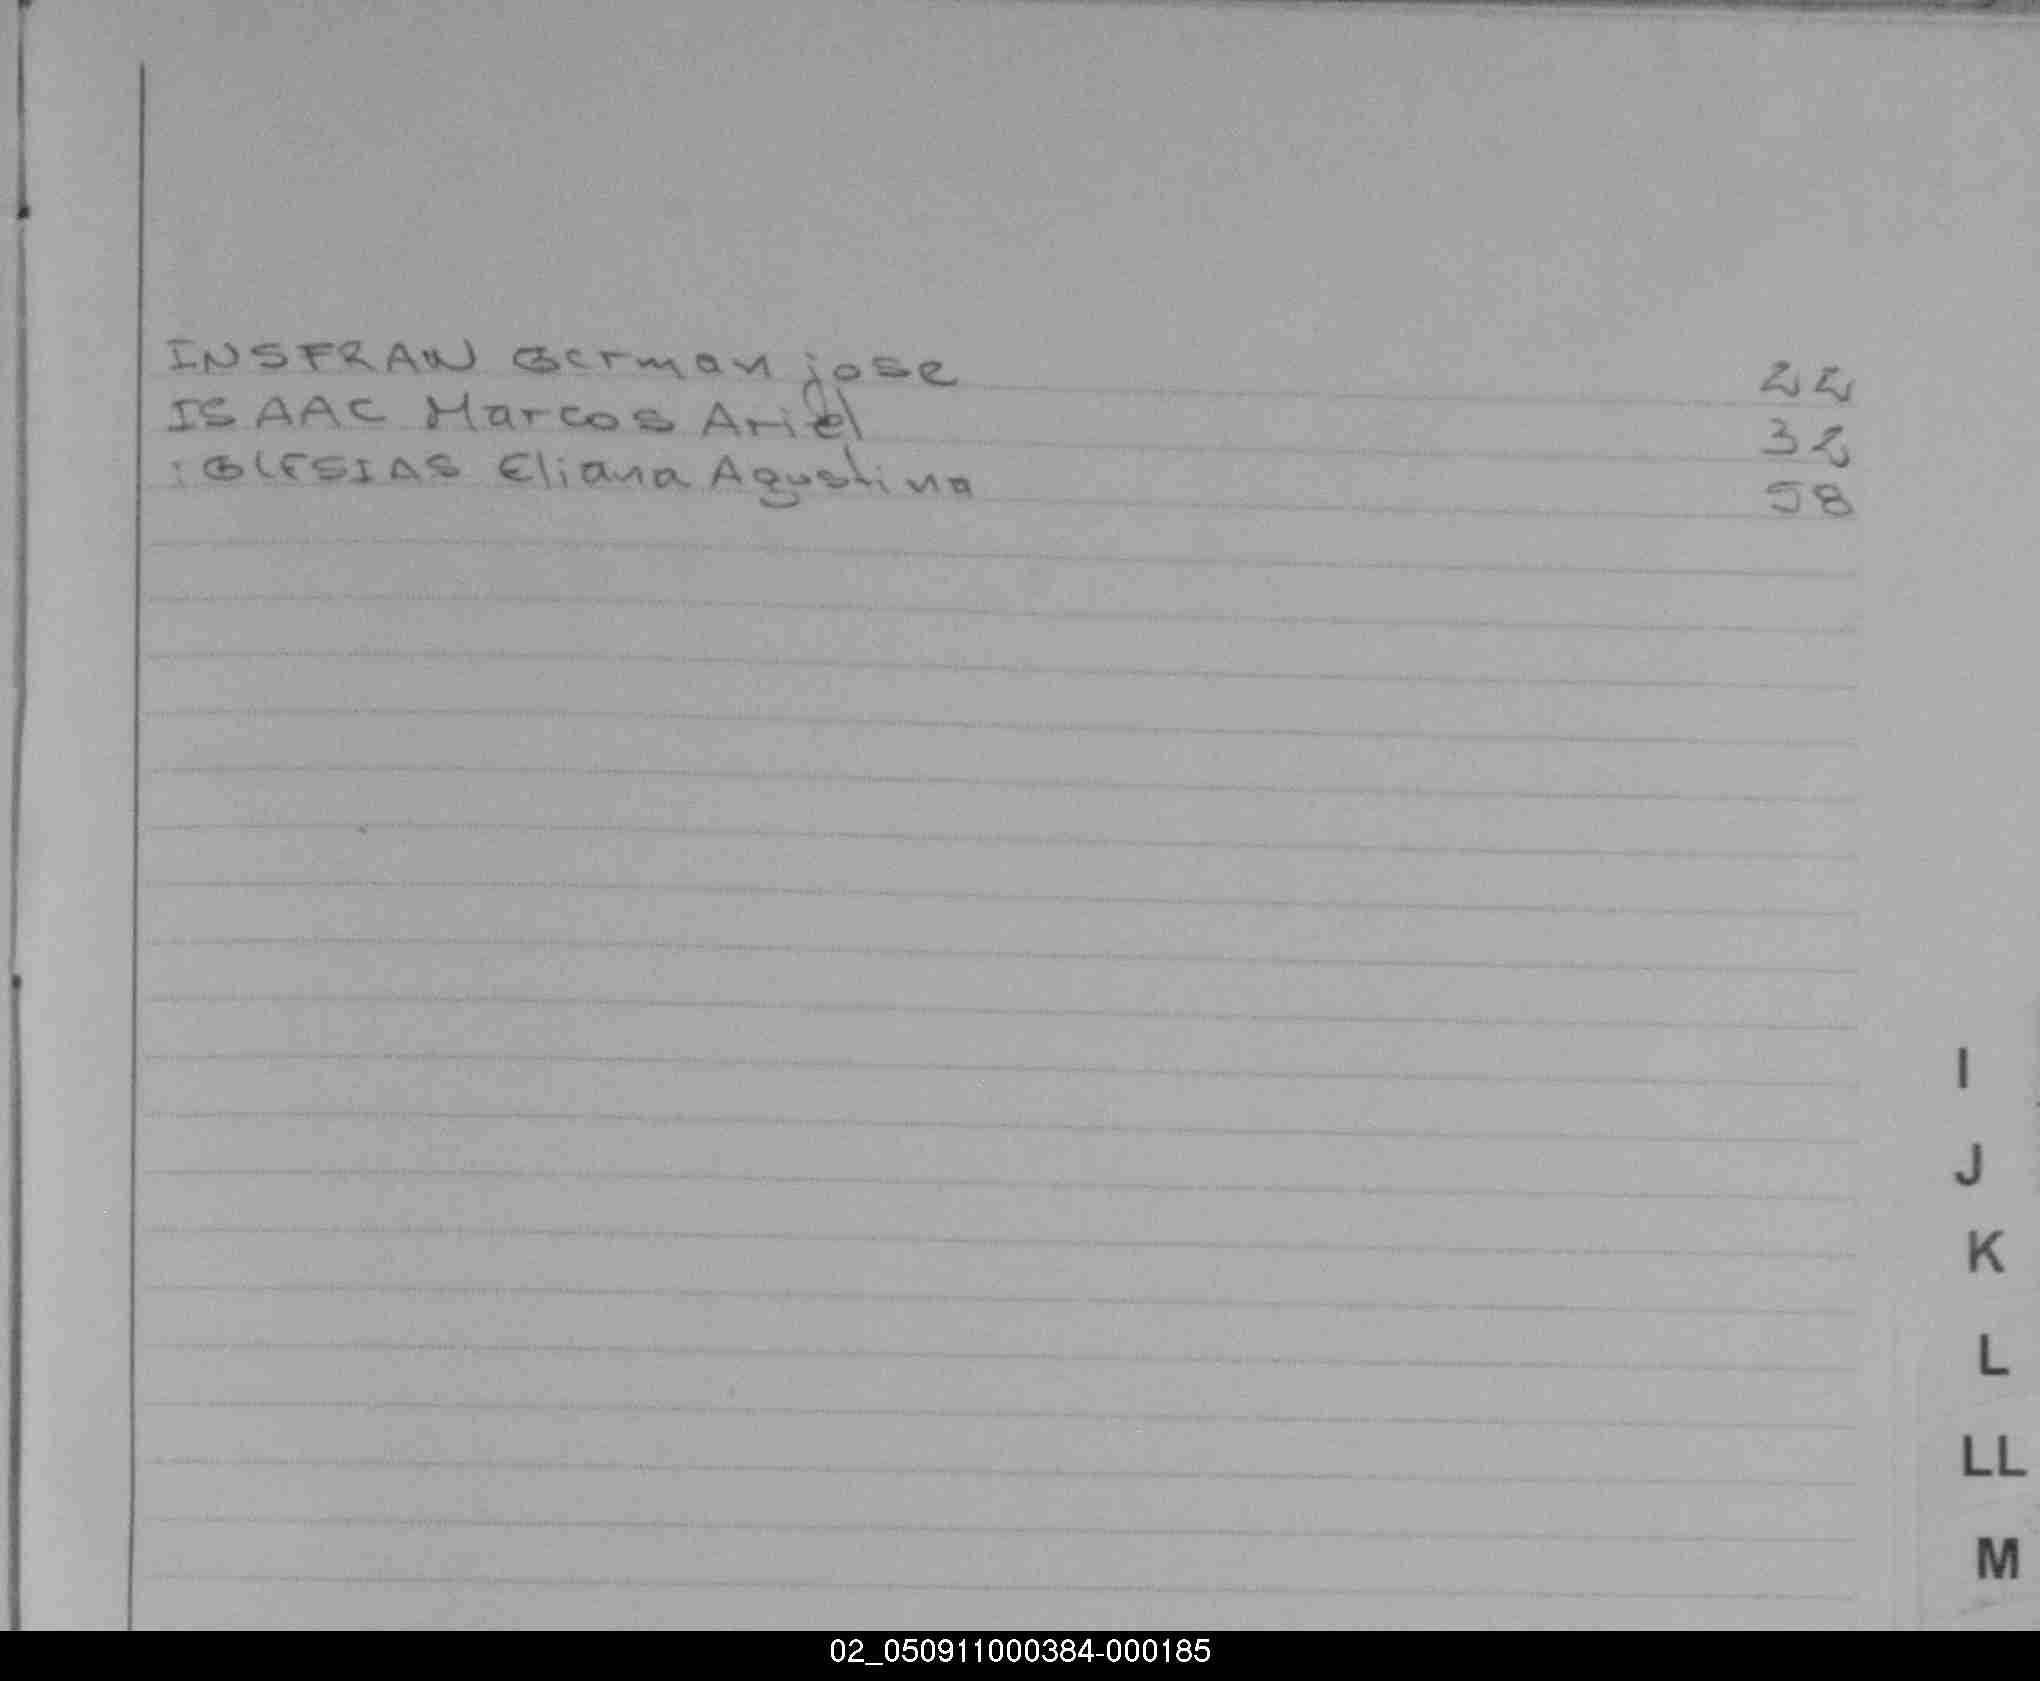 INSFRAN German jose 22
ISAAC Marcos Ariel 32
IGLESIAS Eliana Agustina 58
I
J
K
L
LL
M
02_050911000384-000185